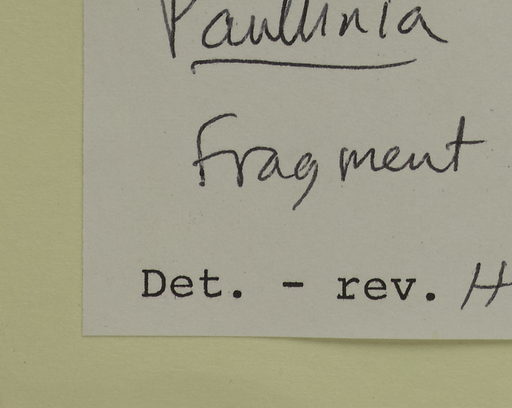 Paullinia
fragment
Det. - rev. H